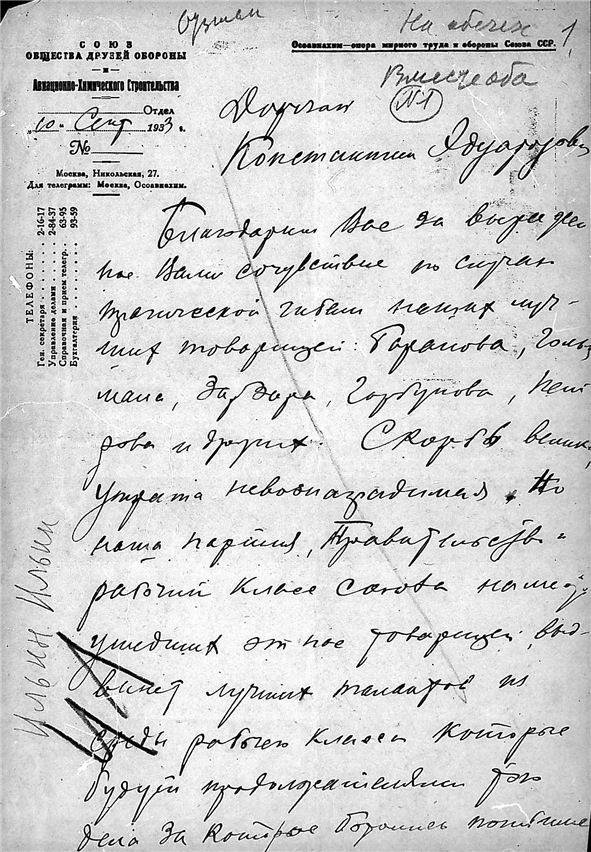 На обечек
1
СОЮЗ
ОБЩЕСТВА ДРУЗЕЙ ОБОРОНЫ
и
Авиационно-Химического Строительства
Осоавиахим—опора мирного труда и обороны Союза ССР.
Отдел
"10" Сент 1933 г.
№
№1
Москва, Никольская, 27.
Для телеграмм: Москва, Осоавиахим.
ТЕЛЕФОНЫ:
Ген. секретаря 2-16-17
Управление делами 2-84-37
Справочная и прием телегр. 63-95
Бухгалтерия 93-59
Константин Эдуардович
Благодарим Вас за выражен
ное Вами сочувствие по случаю
трагической гибели наших луч-
ших товарищей: Баранова, Гольц
мана, Зарзара, Горбунова, Пет
рова и других. Скорбь велика,
утрата невознаградимая. Но
наша партия, Правительство
рабочий класс союза на место
ушедших от нас товарищей, выд-
винет лучших талантов из
среды рабочего класса которые
будут продолжателями того
дела за которые боролись погибшие
Ильин Ильин